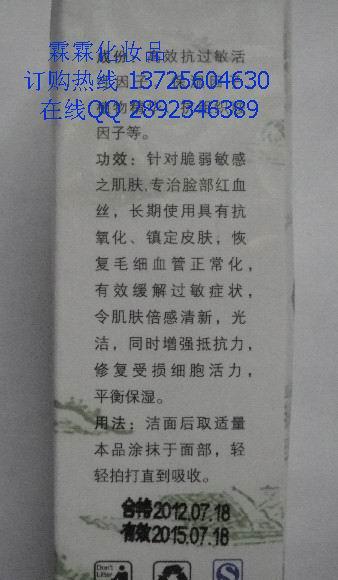 霖霖化妆品
订购热线 13725604630
在线QQ 2892546389
成份：高效抗过敏活
因子等。
功效：针对脆弱敏感
之肌肤,专治脸部红血
丝，长期使用具有抗
氧化、镇定皮肤，恢
复毛细血管正常化，
有效缓解过敏症状，
令肌肤倍感清新，光
洁，同时增强抵抗力，
修复受损细胞活力，
平衡保湿。
用法：洁面后取适量
本品涂抹于面部，轻
轻拍打直到吸收。
合格2012.07.18
有效2015.07.18
Don't
Litter